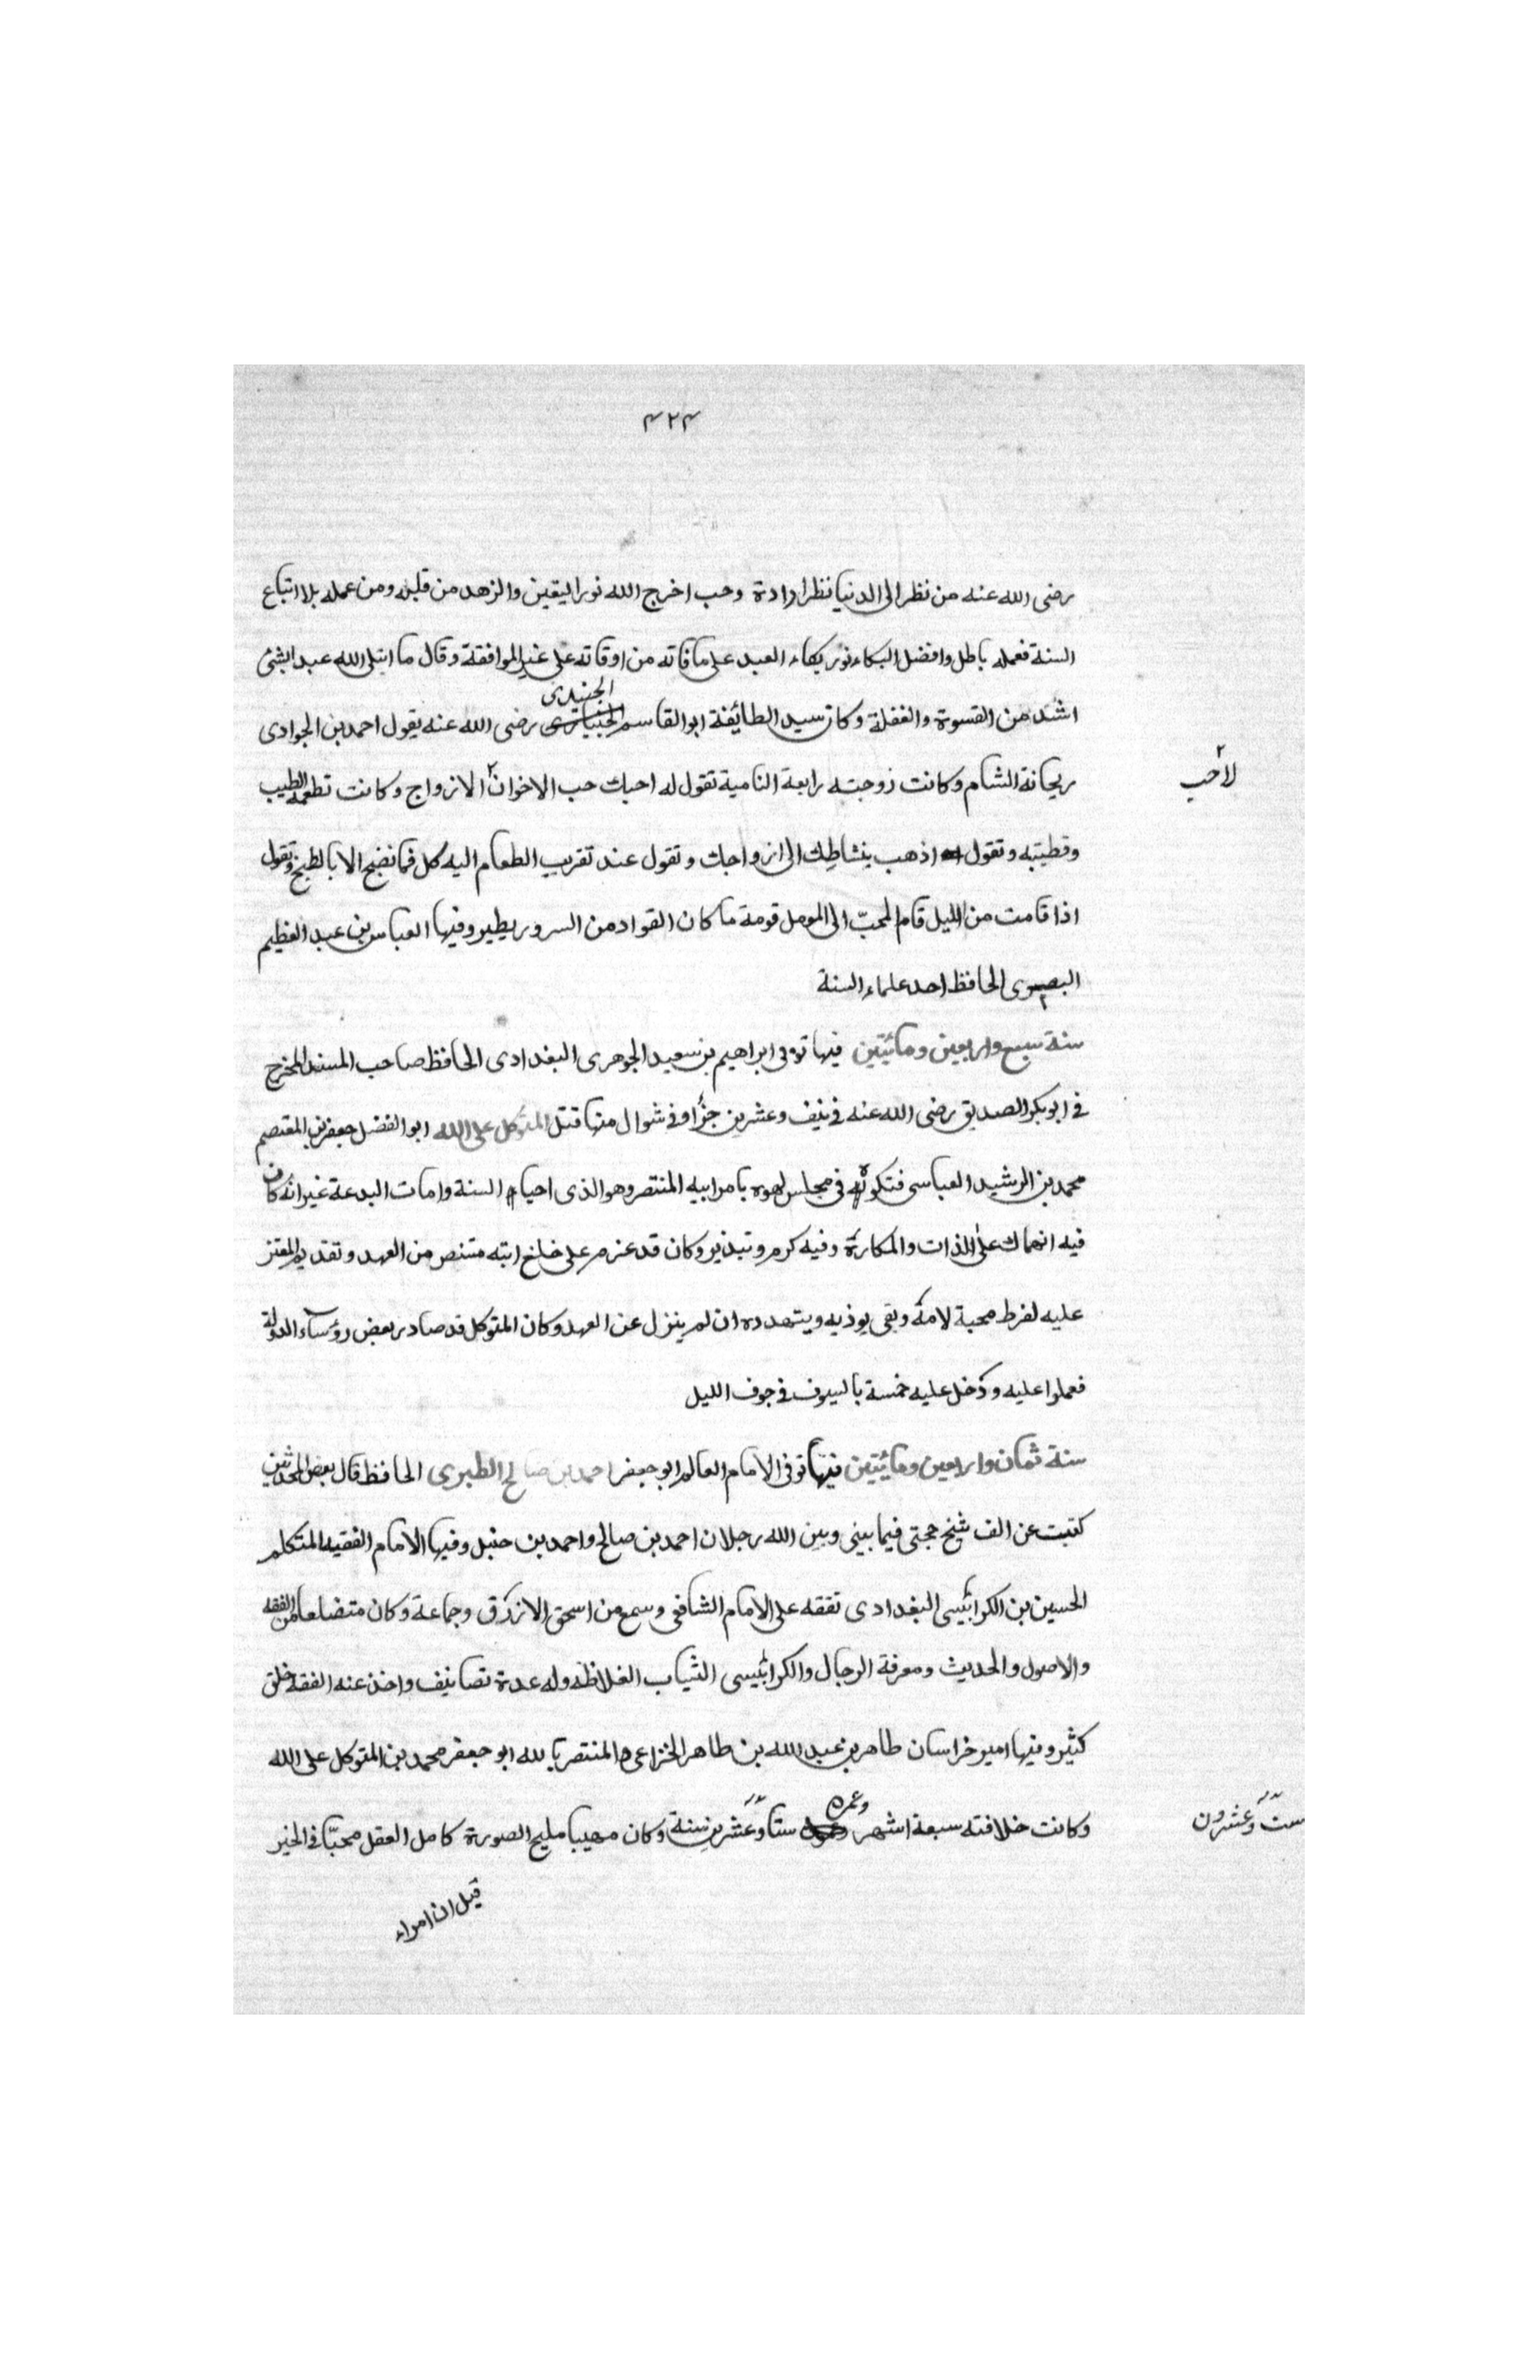 ٤٢٤
رضى الله عنه من نظر الى الدنيا نظر ارادة وحب اخرج الله نور اليقين والزهد من قلبه ومن عمله بلا اتباع
السنة فعمله باطل وافضل البكاء نور بكاء العبد على ما فاته من اوقاته على غير الموافقة وقال ما ابتلى الله عبدا بشئ
اشد من القسوة والغفلة وكان سيد الطائفة ابو القاسم الجنيدى رضى الله عنه يقول احمد بن الجوادى
ريحانة الشام وكانت زوجته رابعة النامية تقول له احبك حب الاخوان ٢ الازواج وكانت تطعمه الطيب
لا حب ٢
وقطيته وتقول اذهب بنشاطك الى ازواجك وتقول عند تقريب الطعام اليه كل فما نضج الا بالطبخ وتقول
اذا قامت من الليل قام المحبّ الى المومل قومة ما كان القواد من السرور يطير وفيها العباس بن عبد العظيم
البصرى الحافظ احد علماء السنة
سنة سبع واربعين ومائيتين فيها توفى ابراهيم بن سعيد الجوهرى البغدادى الحافظ صاحب المسند المخرج
فى ابو بكر الصديق رضى الله عنه فى نيف وعشرين جزأ وفى شوال منها قتل المتوكل على الله ابو الفضل جعفر بن المعتصم
محمد بن الرشيد العباسى فتكوا به فى مجلس لهوه بامر ابيه المنتصر وهو الذى احيا السنة وامات البدعة غير انه كان
فيه انهماك على الذات والمكارة وفيه كرم وتبذير وكان قد عزم على خلع ابنه منتصر من العهد وتقديم المعتز
عليه لفرط محبة لامه وبقى يوذيه ويتهدده ان لم ينزل عن العهد وكان المتوكل قد صادر بعض رؤساء الدولة
فعملوا عليه ودخل عليه خمسة بالسيوف فى جوف الليل
سنة ثمان واربعين ومائيتين فيها توفى الامام العالم ابو جعفر احمد بن صالح الطبرى الحافظ قال بعض المحدثين
كتبت عن الف شيخ حجتى فيما بينى وبين الله رجلان احمد بن صالح واحمد بن حنبل وفيها الامام الفقيه المتكلم
الحسين بن الكرابيسى البغدادى تفقه على الامام الشافعى وسمع من اسحق الازرق وجماعة وكان متضلعا من الفقه
والاصول والحديث ومعرفة الرجال والكرابيسى الثياب الغلاظه وله عدة تصانيف واخذ عنه الفقه خلق
كثير وفيها امير خراسان طاهر بن عبد الله بن طاهر الخزاعى والمنتصر بالله ابو جعفر محمد بن المتوكل على الله
وكانت خلافته سبعة اشهر وعمره ستا وعشرين سنة وكان مهيبا مليح الصورة كامل العقل محبّا فى الخير
ست وعشرون
قيل ان امراء